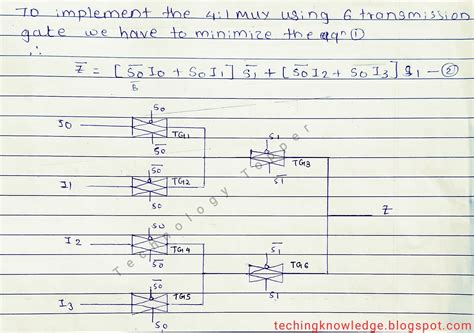 To implement the 4:1 mux using 6 transmission
gate we have to minimize the eqn ①
∴
Z = [S̅0 I0 + S0 I1] S̅1 + [S̅0 I2 + S0 I3] S1 — ②
B
S0
I0
TG1
S̅0
S1
TG3
S̅1
S̅0
I1
TG2
S0
Z
S0
I2
TG4
S̅0
S̅1
TG6
S1
S̅0
I3
TG5
S0
Technology Topper
techingknowledge.blogspot.com